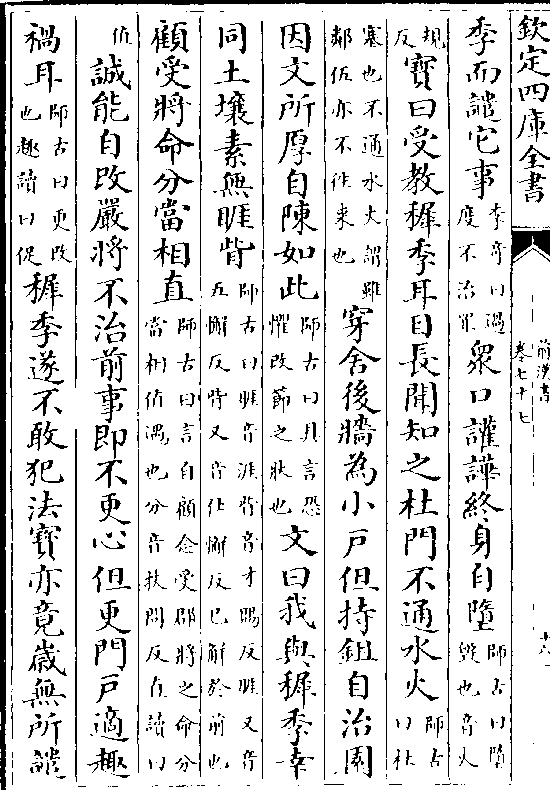 欽定四庫全書
前漢書
卷七十七
十六
季而譴它事李竒曰過度不治罪衆口讙譁終身自墮師古曰墮毁也音火
規反寳曰受教穉季耳目長聞知之杜門不通水火師古曰杜
塞也不通水火謂雖鄰伍亦不徃来也穿舍後牆為小戸但持鉏自治園
因文所厚自陳如此師古曰具言恐懼改節之狀也文曰我與穉季幸
同土壤素無睚眥師古曰睚音涯眥音才賜反睚又音五懈反眥又音仕懈反已解於前也
顧受將命分當相直師古曰言自顧念受郡將之命分當相值遇也分音扶問反直讀曰
值誠能自改嚴將不治前事即不更心但更門戸適趣
禍耳師古曰更改也趣讀曰促穉季遂不敢犯法寳亦竟歳無所譴